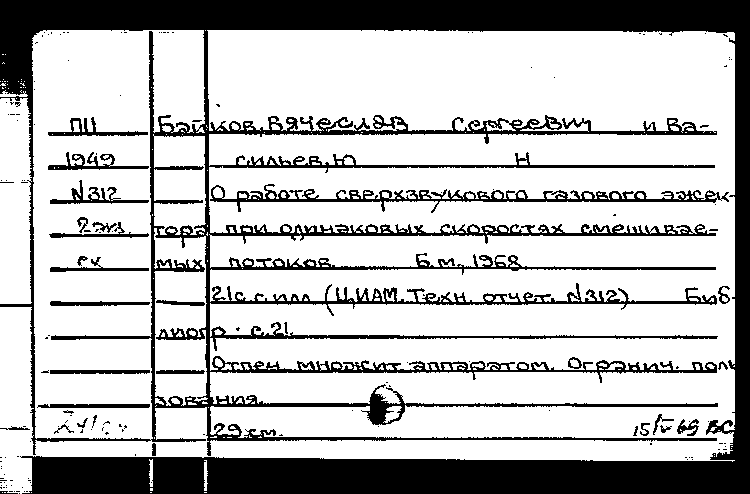 ПП Байков, Вячеслав Сергеевич и Ва-
1949 сильев, Ю Н
N312 О работе сверхзвукового газового эжек-
2 экз. тора при одинаковых скоростях смешивае-
мых потоков. Б.м., 1968
21с. с илл (ЦИАМ. Техн. отчет. N312). Биб-
лиогр. с.21.
Отпеч. множит. аппаратом. Огранич. поль
зования.
29 см. 15/V 69 ВС